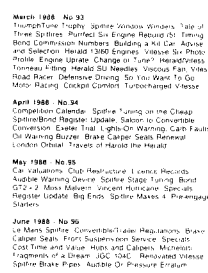 March 1988 No 93
Triumph Tune Trophy Spitfire Window Winders Tale of
Three Spitfires Purrfect Six Engine Rebuild (5) Timing
Bond Commission Numbers Building a Kit Car Advise
and Selection Herald 13/60 Engines Vitesse Six Photo
Profile Engine Uprate Change or Tune? Herald/Vitesse
Tonneau Fitting Herald SU Needles Viscous Fan, Vitesse
Road Racer Defensive Driving So You Want To Go
Motor Racing Cockpit Comfort Turbocharged Vitesse
April 1988 No.94
Competition Calendar Spitfire Tuning on the Cheap
Spitfire/Bond Register Update, Saloon to Convertible
Conversion Exeter Trial Lights-On Warning, Carb Faults
Oil Warning Buzzer Brake Caliper Seals Renewal
London Orbital Travels of Harold the Herald
May 1988 No.95
Car Valuations Club Restructure Licence Records
Audible Warning Device Spitfire Stage Tuning Bond
GT2+2 Moss Malvern Vincent Hurricane Specials
Register Update Big Ends Spitfire Makes 4 Pre-engaged
Starters
June 1988 No 96
Le Mans Spitfire Convertible/Trailer Regulations Brake
Caliper Seals Front Suspension Service Specials
Cost Time and Value Hubs and Calipers Michelotti
Fragments of a Dream JGC 104C Renovated Vitesse
Spitfire Brake Pipes Audible Oil Pressure Erratum